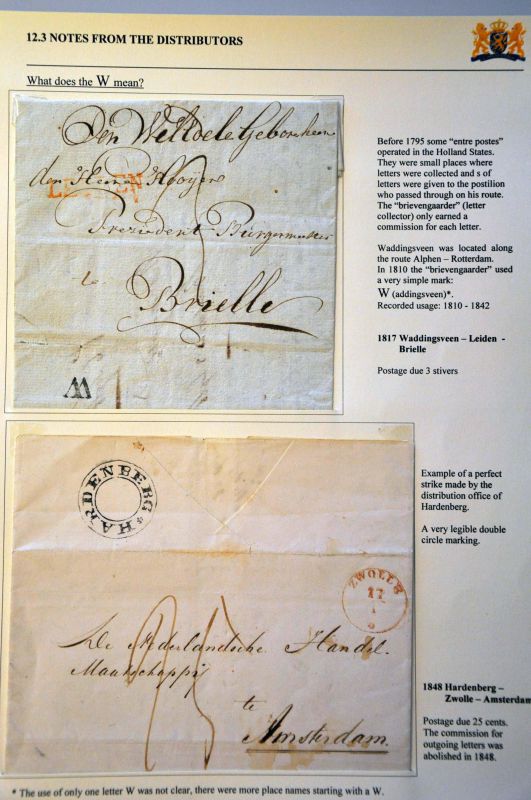 12.3 NOTES FROM THE DISTRIBUTORS
What does the W mean?
Den WelEdele Geboren heer
den Heere Hooyer
LEYDEN
President Burgermeester
te
Brielle
W
Before 1795 some “entre postes”
operated in the Holland States.
They were small places where
letters were collected and s of
letters were given to the postilion
who passed through on his route.
The “brievengaarder” (letter
collector) only earned a
commission for each letter.
Waddingsveen was located along
the route Alphen – Rotterdam.
In 1810 the “brievengaarder” used
a very simple mark:
W (addingsveen)*.
Recorded usage: 1810 - 1842
1817 Waddingsveen – Leiden -
Brielle
Postage due 3 stivers
HARDENBERG
ZWOLLE
27
1
De Nederlandsche Handel
Maatschappij
te
Amsterdam.
Example of a perfect
strike made by the
distribution office of
Hardenberg.
A very legible double
circle marking.
1848 Hardenberg –
Zwolle – Amsterdam
Postage due 25 cents.
The commission for
outgoing letters was
abolished in 1848.
* The use of only one letter W was not clear, there were more place names starting with a W.